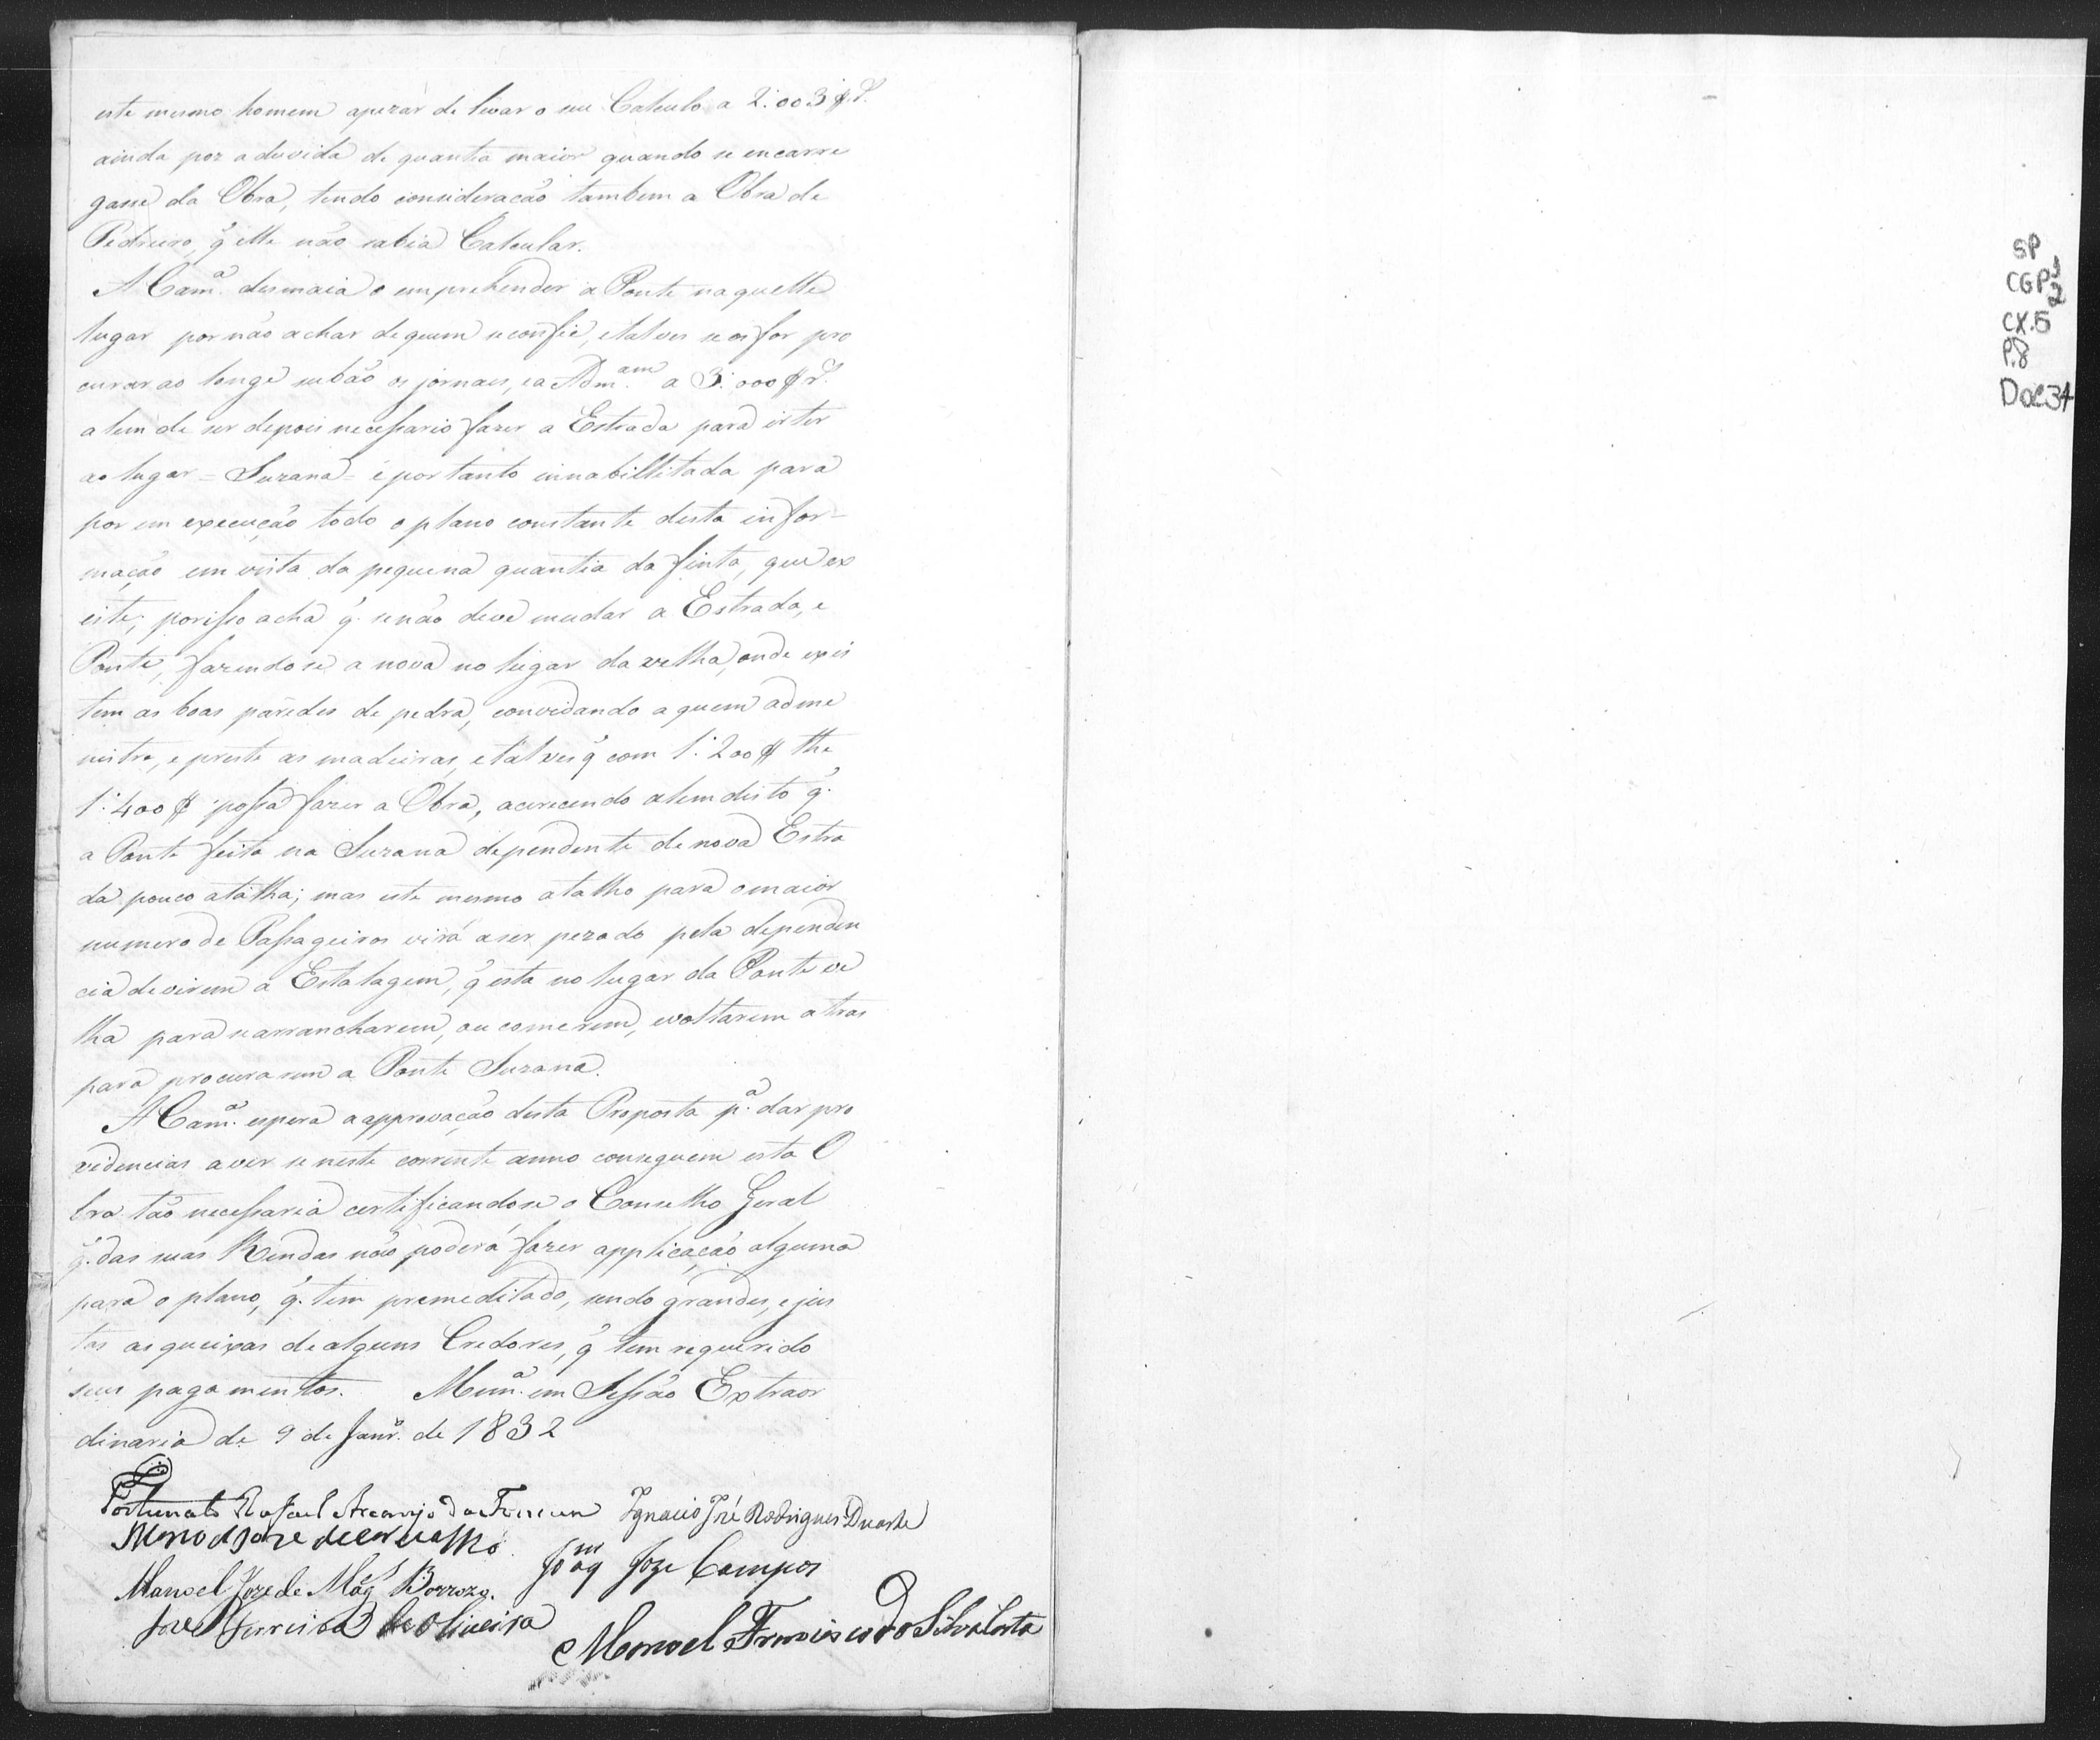 este mesmo homem apezár de livar o seu Calculo a 2:003$rˢ.
ainda poz a duvida de quantia maior quando se encarre
gasse da Obra, tendo consideração tambem a Obra de
Pedreiro, q̃ elle não sabia Calcular.
A Camª. desmaia o emprehender a Ponte naquelle
lugar por não achar de quem se confie, e talves se os for pro
curar ao longe subão os jornaes, e a Admᵃᵐ. a 3:000$rˢ.
alem de ser depois necessario fazer a Estrada para ir ter
ao lugar = Suzana = é por tanto innabillitada para
por em execução todo o plano constante desta infor-
mação em vista da pequena quantia da finta, que ex
eite; porisso acha q̃. se não deve mudar a Estrada, e
Ponte, fazendose a nova no lugar da velha, onde exis
tem as boas parêdes de pedra, convidando a quem adme
nistre, e preste as madeiras, e talves q̃ com 1:200$ the
1:400$ possa fazer a Obra, acrecendo alem disto q̃.
a Ponte feita na Suzana dependente de nova Estra
da pouco atalha; mas este mesmo atalho para o maior
numero de Passageiros virá a ser pezado pela dependen
cia de virem a Estalagem, q̃ esta no lugar da Ponte ve
lha para se arrancharem, ou comerem, e voltarem atras
para procurarem a Ponte Suzana.
A Camª. espera a approvação desta Proposta pª. dar pro
videncias a ver se neste corrente anno conseguem esta O
bra tão necessaria certificandose o Conselho Geral
q̃. das suas Rendas não poderá fazer applicação alguma
para o plano, q̃. tem premeditado, sendo grandes, e jus
tas as queixas de alguns Credores, q̃ tem requerido
seus pagamentos. Munª. em Sessão Extraor
dinaria de 9 de Janrº. de 1832
Fortunato Rafael Arcanjo da Fonseca Ignacio José Rodrigues Duarte
Joaqᵐ Joze Campos
Manoel Joze de Magˢ Barrozo.
José Ferreira de Oliveira
Manoel Francisco da Silva Costa
SP
CGP³2
CX.5
P.8
Doc 34